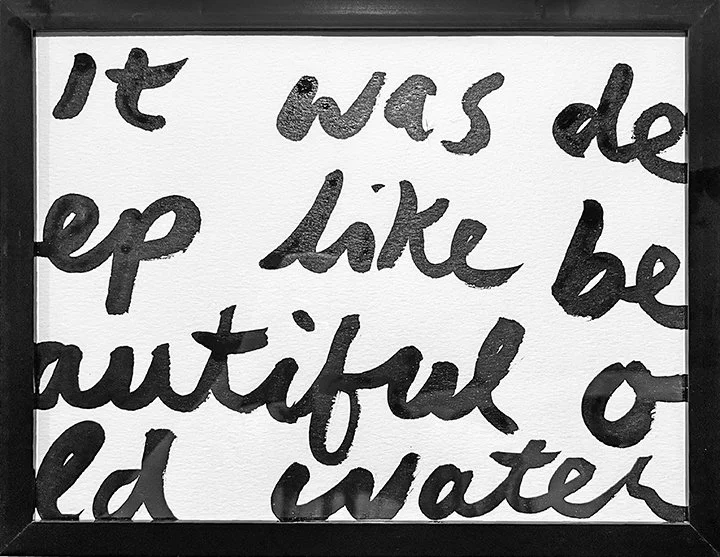 It was de
ep like be
autiful o
ld water